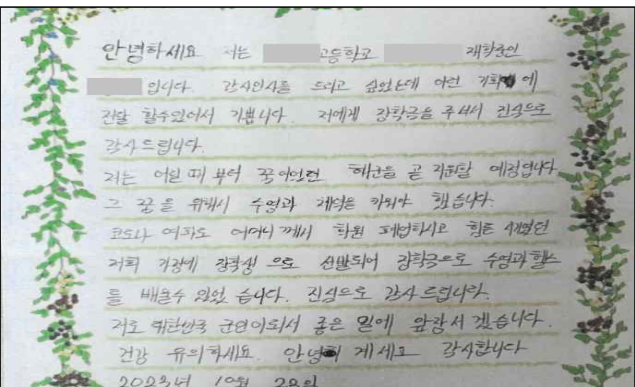 안녕하세요 저는 고등학교 재학중인
입니다. 감사인사를 드리고 싶었는데 이런 기회에
전달 할수있어서 기쁩니다. 저에게 장학금을 주셔서 진심으로
감사드립니다.
저는 어릴 때 부터 꿈이였던 해군을 곧 지원할 예정입니다
그 꿈을 위해서 수영과 체력을 키워야 했습니다.
코로나 여파로 어머니께서 학원 폐업하시고 힘든 시절
저희 가정에 장학생 으로 선발되어 장학금으로 수영과 헬스
를 배울수 있었 습니다. 진심으로 감사 드립니다.
저도 대한민국 군인이되서 좋은 일에 앞장서 겠습니다.
건강 유의하세요. 안녕히 계세요 감사합니다
2023년 10월 28일